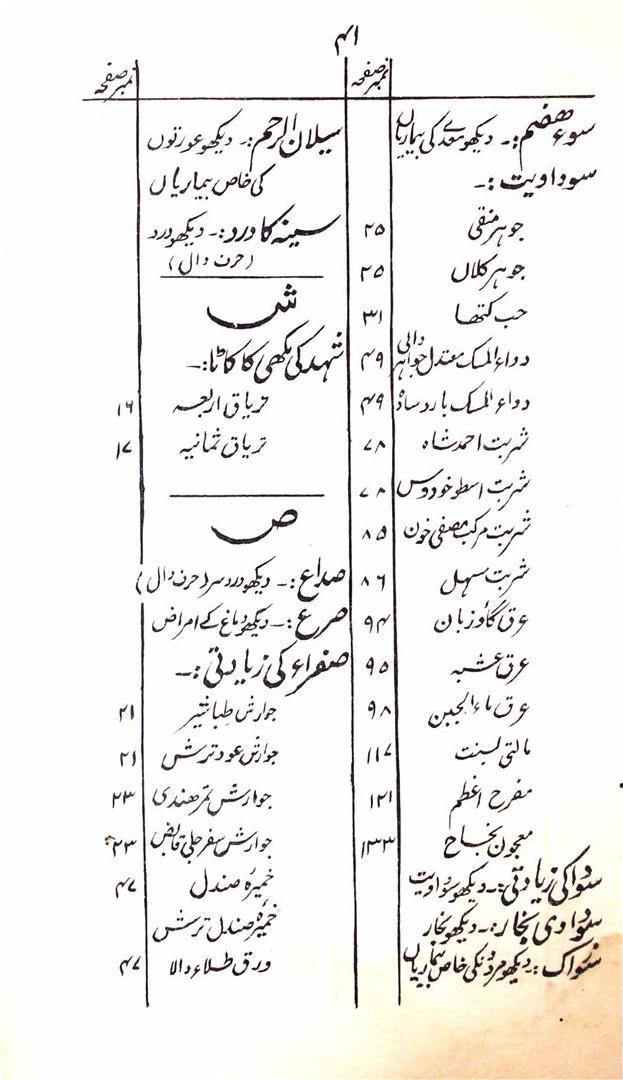 ۴۱
نمبر صفحہ
سوء ھضم:۔ دیکھو معدے کی بیماریاں
سوداویت:۔
جوہر منقی ۲۵
جوہر کلاں ۲۵
حب کتھا ۳۱
دواء المسک معتدل جواہر والی ۴۹
دواء المسک بارد سادہ ۴۹
شربت احمد شاہ ۷۸
شربت اسطوخودوس ۷۸
شربت مرکب مصفی خون ۸۵
شربت مسہل ۸۶
عرق گاؤزبان ۹۴
عرق عشبہ ۹۵
عرق ماء الجبن ۹۸
مالتی بسنت ۱۱۷
مفرح اعظم ۱۲۱
معجون نجاح ۱۳۳
سودا کی زیادتی:۔ دیکھو سوداویت
سوداوی بخار:۔ دیکھو بخار
سوزاک:۔ دیکھو مردونکی خاص بیماریاں
نمبر صفحہ
سیلان الرحم:۔ دیکھو عورتوں
کی خاص بیماریاں
سینہ کا درد:۔ دیکھو درد
(حرف دال)
ش
شہد کی مکھی کا کاٹا:۔
تریاق اربعہ ۱۶
تریاق ثمانیہ ۱۷
ص
صداع:۔ دیکھو درد سر (حرف دال)
صرع:۔ دیکھو دماغ کے امراض
صفراء کی زیادتی:۔
جوارش طباشیر ۲۱
جوارش عود ترش ۲۱
جوارش تمر ھندی ۲۳
جوارش سفرجلی قابض ۲۳
خمیرہ صندل ۴۷
خمیرہ صندل ترش
ورق طلاء والا ۴۷